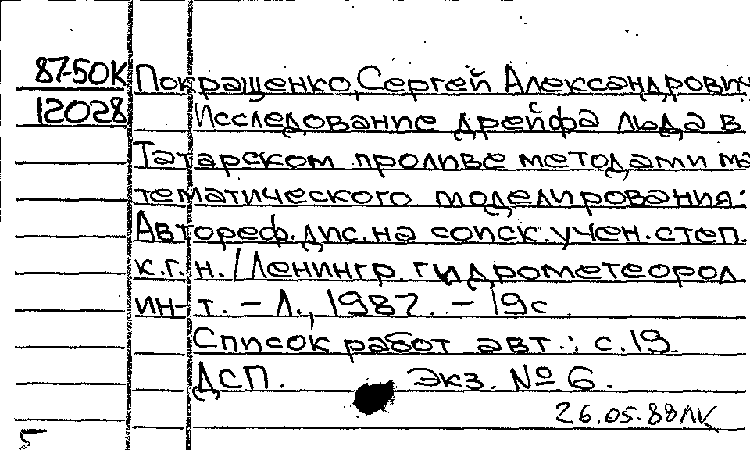 87-50К Покращенко, Сергей Александрович
12028 Исследование дрейфа льда в
Татарском проливе методами ма
тематического моделирования:
Автореф. дис. на соиск. учен. степ.
к.г.н. / Ленингр. гидрометеорол.
ин-т. - Л., 1987. - 19с
Список работ авт.: с.19
ДСП. Экз. № 6.
26.05.88ЛК
5